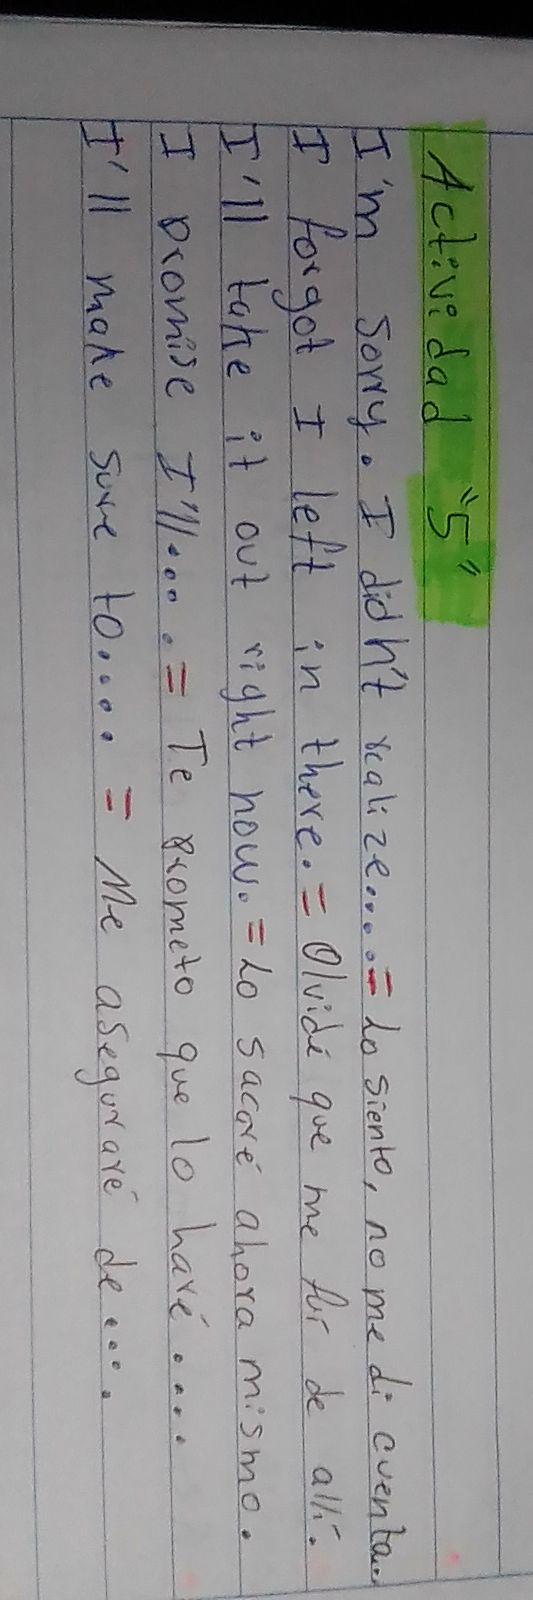 Actividad "5"
I'm sorry. I didn't realize.... = Lo siento, no me di cuenta..
I forgot I left in there. = Olvidé que me fui de allí.
I'll take it out right now. = Lo sacaré ahora mismo.
I promise I'll.... = Te prometo que lo haré ....
I'll make sure to.... = Me aseguraré de....